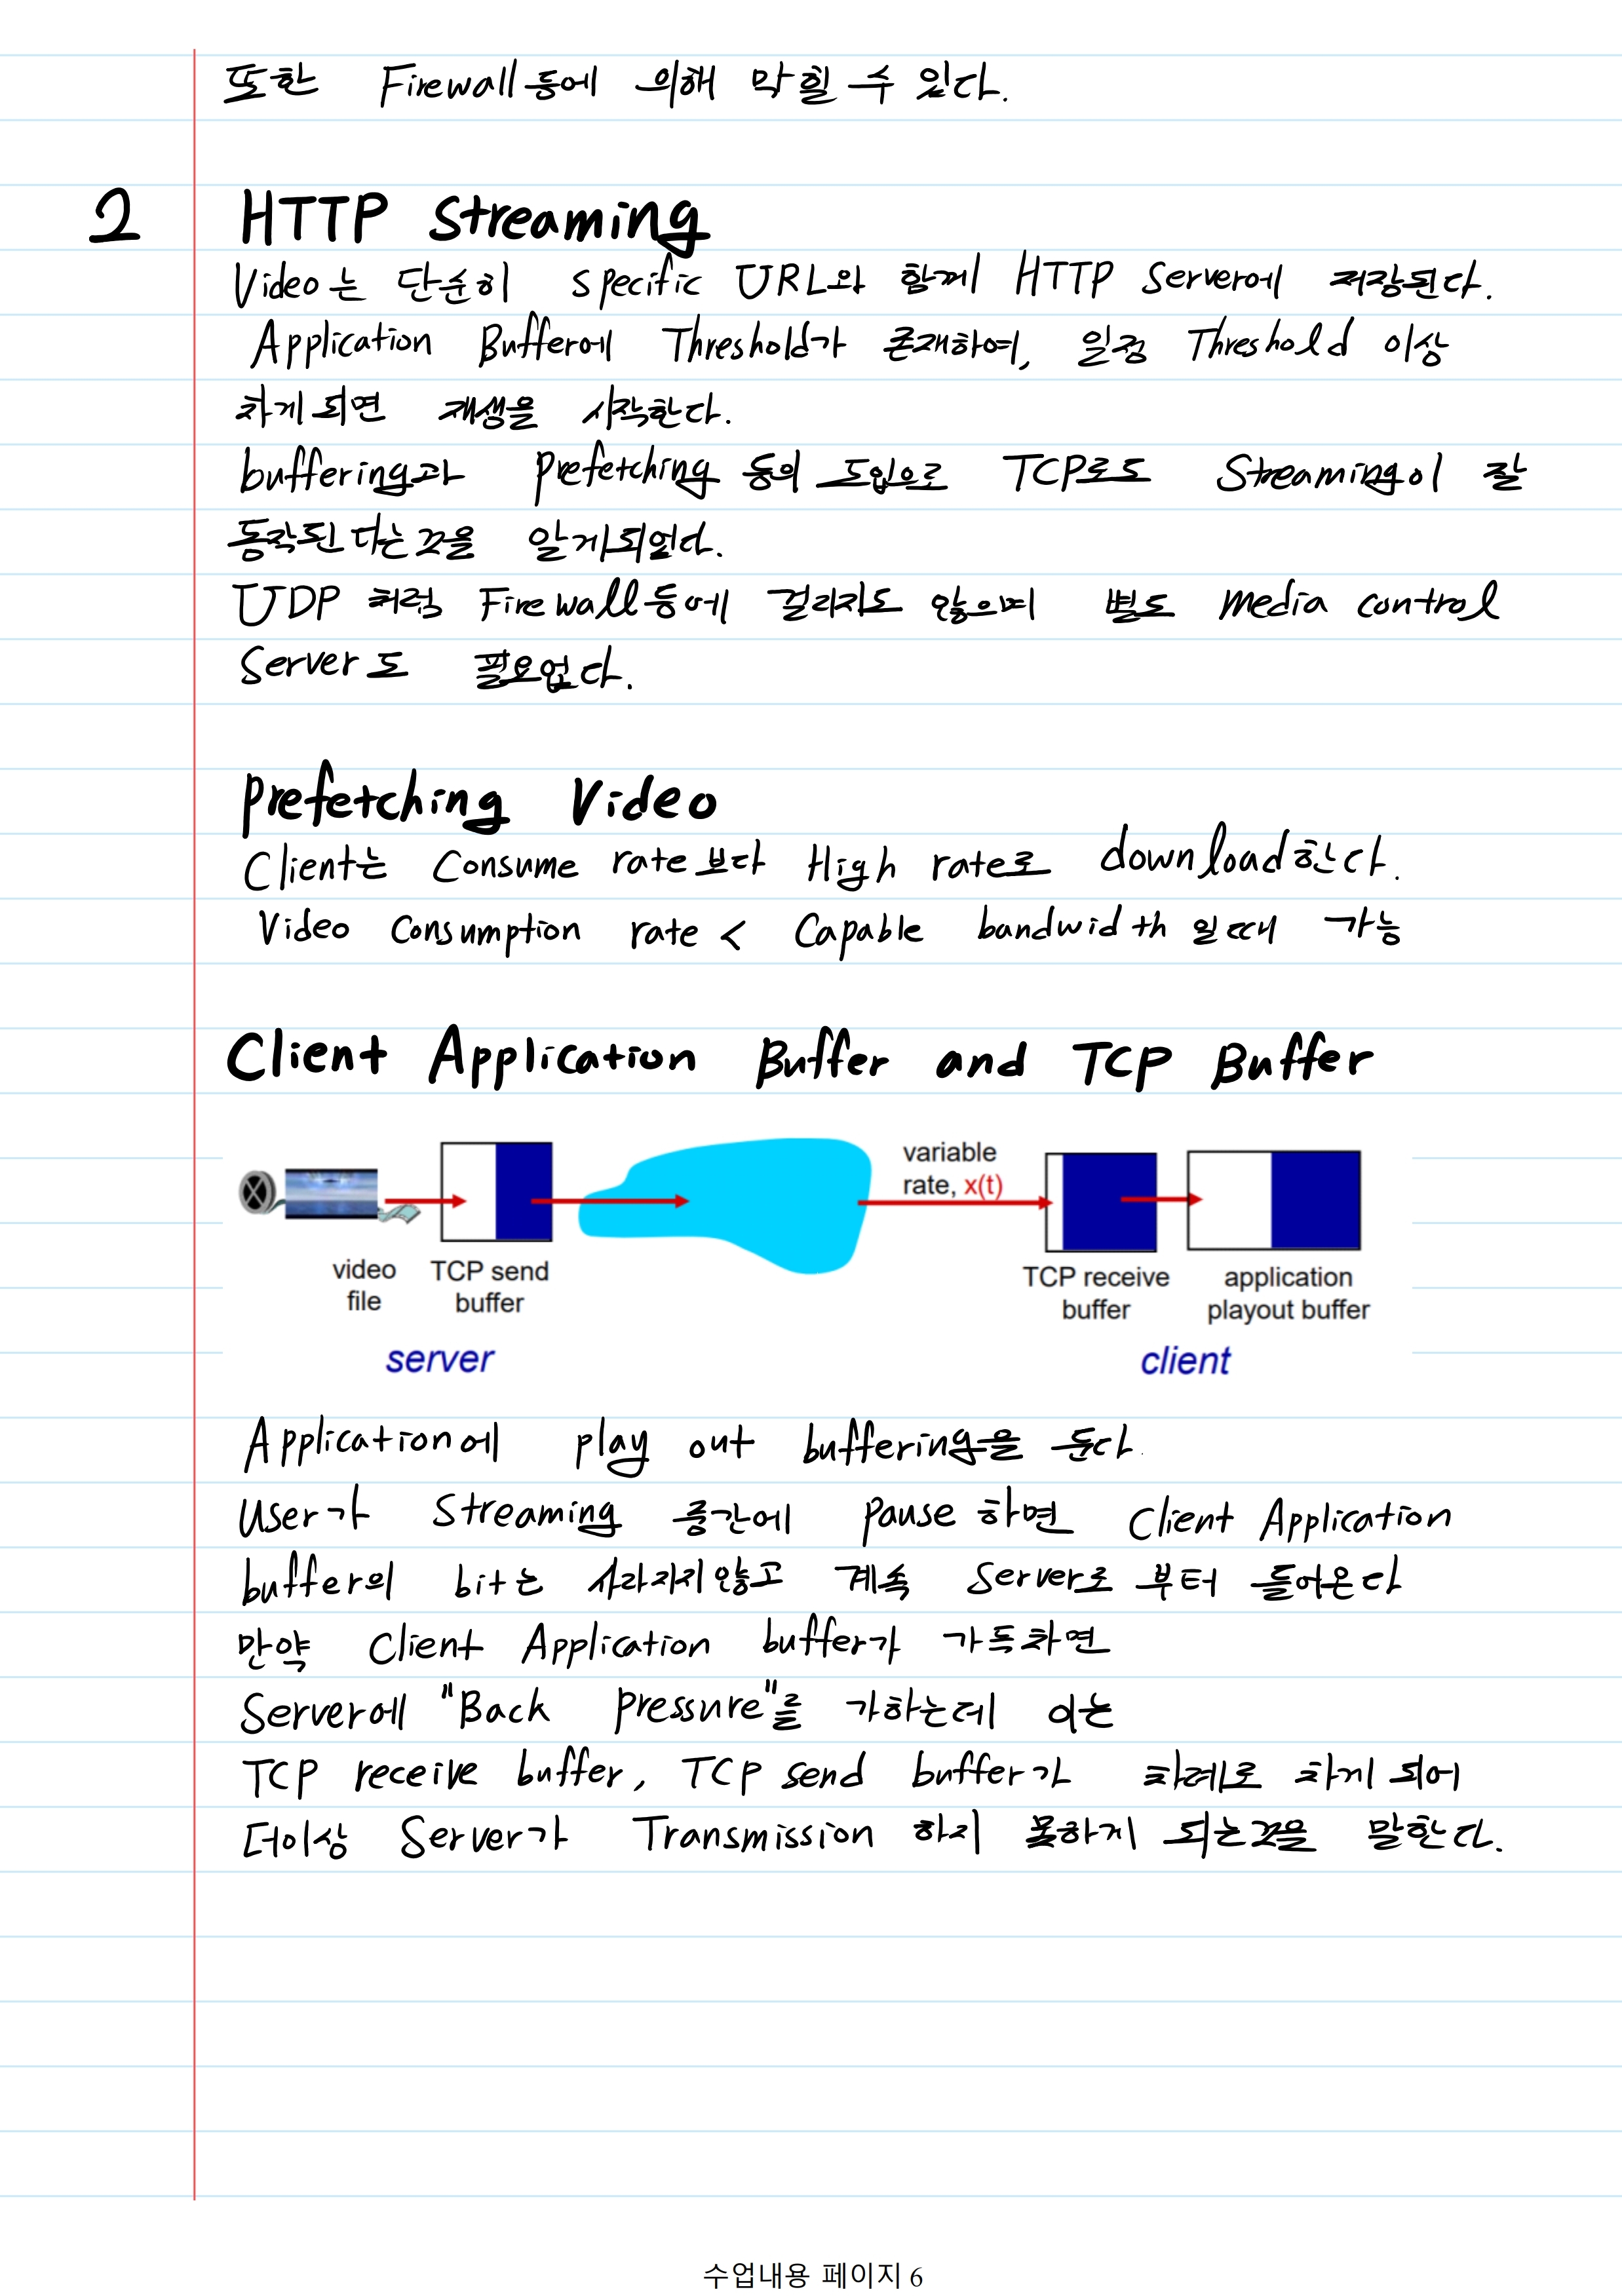 또한 Firewall등에 의해 막힐 수 있다.
2 HTTP Streaming
Video는 단순히 specific URL와 함께 HTTP Server에 저장된다.
Application Buffer에 Threshold가 존재하여, 일정 Threshold 이상
차게되면 재생을 시작한다.
buffering과 prefetching 등의 도입으로 TCP로도 Streaming이 잘
동작된다는것을 알게되었다.
UDP 처럼 Firewall등에 걸리지도 않으며 별도 media control
Server도 필요없다.
Prefetching Video
Client는 Consume rate보다 High rate로 download한다.
Video Consumption rate < Capable bandwidth 일때 가능
Client Application Buffer and TCP Buffer
variable
rate, x(t)
video
file
TCP send
buffer
TCP receive
buffer
application
playout buffer
server
client
Application에 play out buffering을 둔다.
User가 Streaming 중간에 pause 하면 Client Application
buffer의 bit는 사라지지않고 계속 Server로 부터 들어온다
만약 Client Application buffer가 가득차면
Server에 "Back pressure"를 가하는데 이는
TCP receive buffer, TCP send buffer가 차례로 차게 되어
더이상 Server가 Transmission 하지 못하게 되는것을 말한다.
수업내용 페이지 6